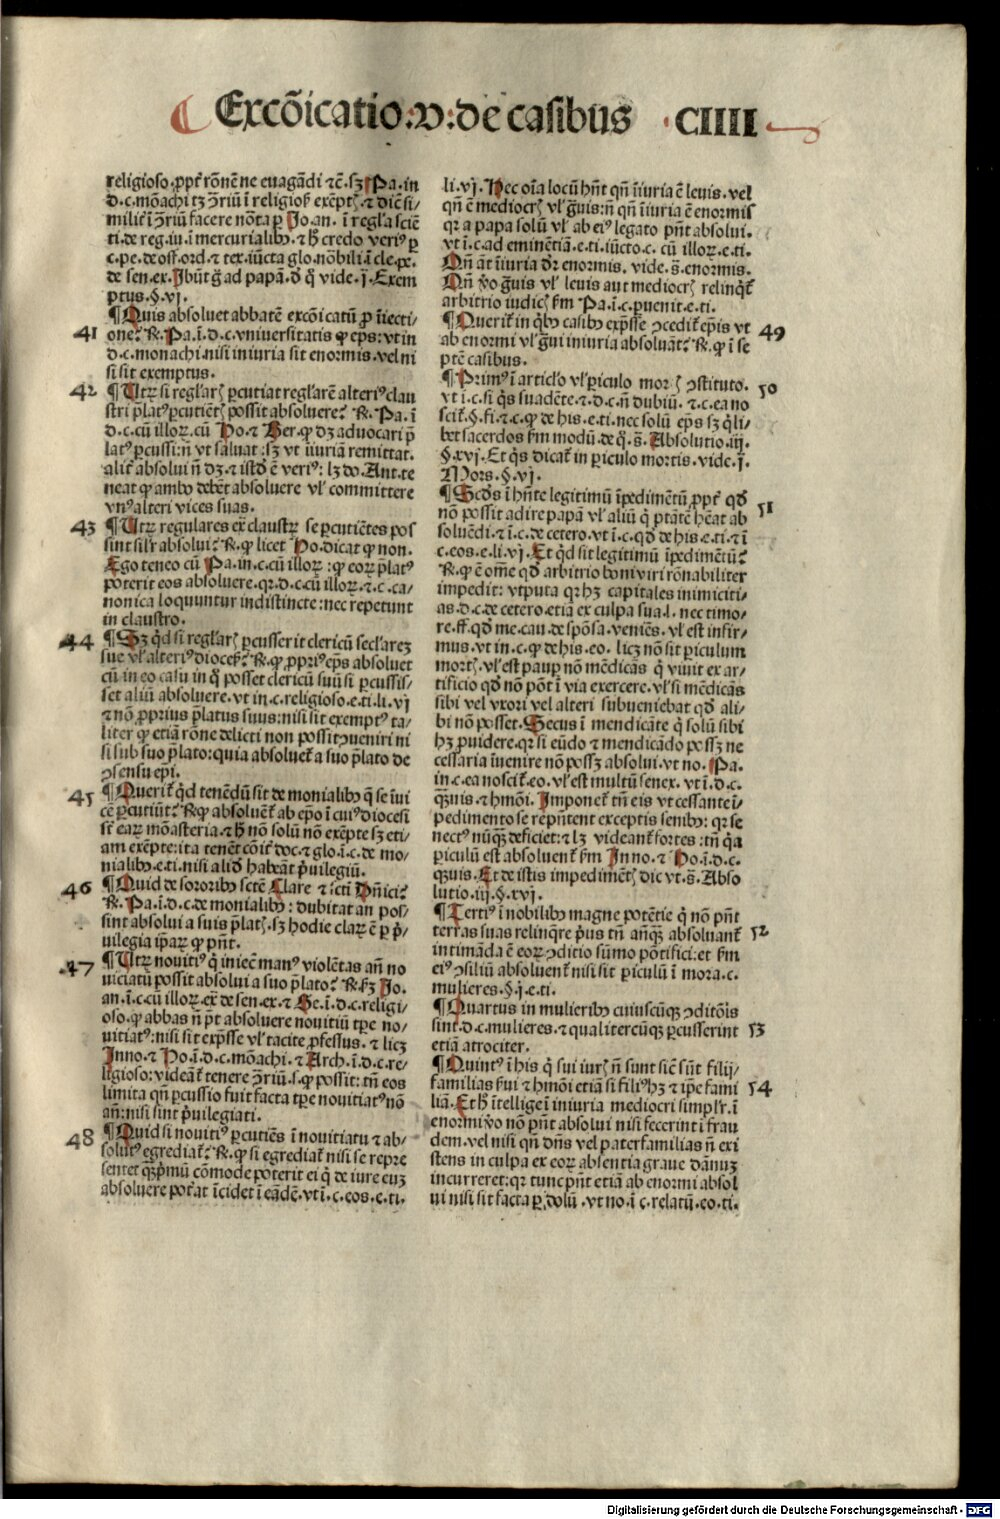 Excõicatio .v. de casibus CIIII
religioso. ꝓpt̃ rõnẽ ne euagãdi ⁊c̃. sꝫ Pa. in
d. c. mõachi tꝫ ↄ̃riũ ĩ religios̃ exẽpt̃. ⁊ diẽ si/
milit̃ ĩ ↄ̃riũ facere nõta ꝑ Jo. an. ĩ regl̃a sciẽ
ti. de reg. iu. ĩ mercurialibꝰ. ⁊ h̃ credo veriꝰ ꝑ
c. pe. de off. ord. ⁊ tex. iũcta glo. nõbili ĩ cle. pe.
de sen. ex. Jbũt g̃ ad papã. d̃ q̃ vide. j. Exem
ptus. §. vj.
41 ¶ Quis absoluet abbatẽ excõicatũ ꝓ ĩiecti-
one? R̃. Pa. ĩ. d. c. vniuersitatis ꝙ ep̃s: vt in
d. c. monachi. nisi iniuria sit enormis. vel ni
si sit exemptus.
42 ¶ Utꝝ si regl̃aꝛ̃ ꝑcutiat regl̃arẽ alteriꝰ clau
stri p̃latꝰ ꝑcutiẽt̃ possit absoluere? R̃. Pa. ĩ
d. c. cũ illoꝝ. cũ Ho. ⁊ Ber. ꝙ dꝫ aduocari p̃
latꝰ ꝑcussi: ñ vt saluat: sꝫ vt iĩuriã remittat.
alit̃ absolui ñ dꝫ. ⁊ istd̃ ẽ veriꝰ: lꝫ do. Ant. te
neat ꝙ ambo debẽt absoluere vl̃ committere
vnꝰ alteri vices suas.
43 ¶ Utꝝ regulares ex̃ claustꝝ se ꝑcutiẽtes pos
sint sil̃r absolui? R̃. ꝙ licet Ho. dicat ꝙ non.
Ego teneo cũ Pa. in. c. cũ illoꝝ: ꝙ eoꝝ p̃latꝰ
poterit eos absoluere. qꝛ. d. c. cũ illoꝝ. ⁊. c. ca-
nonica loquuntur indistincte: nec repetunt
in claustro.
44 ¶ Sꝫ qd̃ si regl̃aꝛ̃ ꝑcusserit clericũ secl̃arẽ
sue vl̃ alteriꝰ dioces̃? R̃. ꝙ ꝓpriꝰ ep̃s absoluet
cũ in eo casu in q̃ posset clericũ suũ si ꝑcussis-
set aliũ absoluere. vt in. c. religioso. e. ti. li. vj
⁊ nõ ꝓprius p̃latus suus: nisi sit exemptꝰ ta-
liter ꝙ etiã rõne delicti non possit ↄueniri ni
si sub suo p̃lato: quia absoluet̃ a suo p̃lato de
ↄsensu ep̃i.
45 ¶ Querit̃ qd̃ tenẽdũ sit de monialibꝰ q̃ se ĩui
cẽ ꝑcutiũt? R̃. ꝙ absoluẽt̃ ab ep̃o ĩ cuiꝰ diocesi
st̃ eaꝝ mõasteria. ⁊ h̃ nõ solũ nõ exẽpte sꝫ eti-
am exẽpte: ita tenẽt cõit̃ doc. ⁊ glo. ĩ. c. de mo-
nialibꝰ. e. ti. nisi alid̃ habeãt p̃uilegiũ.
46 ¶ Quid de sororibꝰ sctẽ Clare ⁊ sc̃ti Dñici?
R̃. Pa. ĩ. d. c. de monialibꝰ: dubitat an pos-
sint absolui a suis p̃lat̃. sꝫ hodie claꝝ ẽ ꝑ p̃/
uilegia ip̃aꝝ ꝙ pñt.
47 ¶ Utꝝ nouitiꝰ q̃ iniec̃ manꝰ violẽtas añ no
uiciatũ possit absolui a suo p̃lato? R̃. ẜꝫ Jo.
an. ĩ. c. cũ illoꝝ. ex̃. de sen. ex. ⁊ Ge. ĩ. d. c. religi-
oso. ꝙ abbas ñ p̃t absoluere nouitiũ tp̃e no-
uitiatꝰ: nisi sit exp̃sse vl̃ tacite ꝓfessus. ⁊ licꝫ
Inno. ⁊ Ho. ĩ. d. c. mõachi. ⁊ Arch. ĩ. d. c. re-
ligioso: videãt̃ tenere ↄ̃riũ. s. ꝙ possit: tñ eos
limita qñ ꝑcussio fuit facta tp̃e nouitiatꝰ nõ
añ: nisi sint p̃uilegiati.
48 ¶ Quid si nouitiꝰ ꝑcutiẽs ĩ nouitiatu ⁊ ab/
solutꝰ egrediat̃? R̃. ꝙ si egrediat̃ nisi se repre
sentet q̃ꝫprimũ cõmode poterit ei q̃ de iure euꝫ
absoluere poterat ĩcidet ĩ eãdẽ. vt ĩ. c. eos. e. ti.
li. vj. Hec oĩa locũ hñt qñ ĩiuria ẽ leuis. vel
qñ ẽ mediocr̃ vl̃ g̃uis: ñ qñ ĩiuria ẽ enormis
qꝛ a papa solũ vl̃ ab eiꝰ legato pñt absolui.
vt ĩ. c. ad eminẽtiã. e. ti. iũcto. c. cũ illoꝝ. e. ti.
Qñ at̃ ĩiuria dr̃ enormis. vide. s̃. enormis.
Qñ ṽo g̃uis vl̃ leuis aut mediocr̃ relinq̃t̃
arbitrio iudic̃ ẜm Pa. ĩ. c. ꝑuenit. e. ti.
49 ¶ Querit̃ in q̃bꝰ casibꝰ exp̃sse ↄcedit̃ ep̃is vt
ab enormi vl̃ g̃ui iniuria absoluãt? R̃. ꝙ ĩ se
ptẽ casibus.
50 ¶ Primꝰ ĩ articl̃o vl̃ ꝑiculo mort̃ ↄstituto.
vt ĩ. c. si q̃s suadẽte. ⁊. d. c. ñ dubiũ. ⁊. c. ea no
scit̃. §. fi. ⁊. c. ꝙ de his. e. ti. nec solũ ep̃s sꝫ q̃li/
bet sacerdos ẜm modũ de q̃. s̃. Absolutio. iij.
§. xvj. Et q̃s dicat̃ in ꝑiculo mortis. vide. j̃.
Mors. §. vj.
51 ¶ Scd̃s ĩ hñte legitimũ ĩpedimẽtũ ꝓpt̃ qd̃
nõ possit adire papã vl̃ aliũ q̃ ptãtẽ hẽat ab
soluẽdi. ⁊ ĩ. c. de cetero. vt ĩ. c. qd̃ de his. e. ti. ⁊ ĩ
c. eos. e. li. vj. Et qd̃ sit legitimũ ĩpedimẽtũ?
R̃. ꝙ ẽ om̃e qd̃ arbitrio boni viri rõnabiliter
impedit: vtputa qꝛ hꝫ capitales inimiciti-
as. d. c. de cetero. etiã ex culpa sua. l. nec timo-
re. ff. qd̃ me. cau. de spõsa. veniẽs. vl̃ est infir-
mus. vt in. c. ꝙ de his. eo. licꝫ nõ sit ꝑiculum
mort̃. vl̃ est pauꝑ nõ mẽdicãs q̃ viuit ex ar-
tificio qd̃ nõ põt ĩ via exercere. vl̃ si mẽdicãs
sibi vel vxori vel alteri subueniebat qd̃ ali/
bi nõ posset. Secus ĩ mendicãte q̃ solũ sibi
hꝫ ꝓuidere. qꝛ si eũdo ⁊ mendicãdo possꝫ ne
cessaria ĩuenire nõ possꝫ absolui. vt no. Pa.
in. c. ea noscit̃. eo. vl̃ est multũ senex. vt ĩ. d. c.
q̃ꝫuis. ⁊ hmõi. Imponet̃ tñ eis vt cessante ĩ-
pedimento se rep̃ntent exceptis senibꝰ: qꝛ se
nectꝰ nũq̃ꝫ deficiet: ⁊ lꝫ videant̃ fortes: tñ q̃a
ꝑiculũ est absoluent̃ ẜm Inno. ⁊ Ho. ĩ. d. c.
q̃ꝫuis. Et de istis impedimẽt̃ dic vt. s̃. Abso
lutio. iij. §. xvj.
52 ¶ Tertiꝰ ĩ nobilibꝰ magne potẽtie q̃ nõ pñt
terras suas relinq̃re p̃us tñ añq̃ꝫ absoluant̃
intimãda ẽ eoꝝ ↄditio sũmo põtifici: et ẜm
eiꝰ ↄsiliũ absoluent̃ nisi sit ꝑiculũ ĩ mora. c.
mulieres. §. j. e. ti.
53 ¶ Quartus in mulieribꝰ cuiuscũqꝫ ↄditõis
sint. d. c. mulieres. ⁊ qualitercũqꝫ ꝑcusserint
etiã atrociter.
54 ¶ Quintꝰ ĩ his q̃ sui iuꝛ̃ ñ sunt sic̃ sũt filij/
familias ẜui ⁊ hmõi etiã si filiꝰ hꝫ ⁊ ip̃e fami
liã. Et h̃ ĩtellige ĩ iniuria mediocri simpl̃r. ĩ
enormi ṽo nõ pñt absolui nisi fecerint ĩ frau
dem. vel nisi qñ dñs vel paterfamilias ñ exi
stens in culpa ex eoꝝ absentia graue dãnuꝫ
incurreret: qꝛ tunc pñt etiã ab enormi absol
ui nisi sit facta ꝑ dolũ. vt no. ĩ c. relatũ. eo. ti.
Digitalisierung gefördert durch die Deutsche Forschungsgemeinschaft - DFG